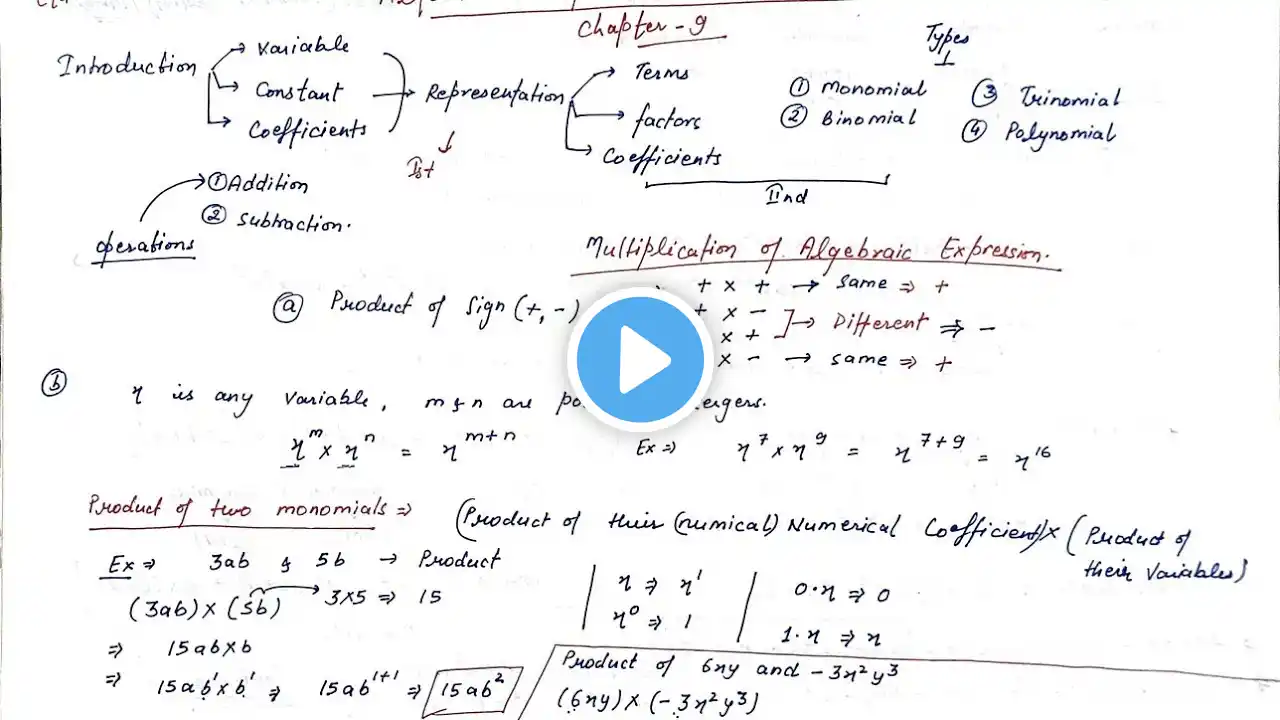 Chapter - 9
Introduction → Variable
→ Constant
→ Coefficients
→ Representation
Ist
→ Terms
→ factors
→ Coefficients
IInd
Types
① Monomial
② Binomial
③ Trinomial
④ Polynomial
operations
① Addition
② Subtraction.
Multiplication of Algebraic Expression.
ⓐ Product of Sign (+, -)
+ × + → Same ⇒ +
+ × -
× + ] → Different ⇒ -
× - → same ⇒ +
ⓑ x is any variable, m & n are
x^m × x^n = x^{m+n} Ex ⇒ x^7 × x^9 = x^{7+9} = x^16
Product of two monomials ⇒ (Product of their (numical) Numerical Coefficient) × (Product of
their Variables)
Ex ⇒ 3ab & 5b → Product
(3ab) × (5b) → 3×5 ⇒ 15
⇒ 15ab×b
⇒ 15ab^1×b^1 ⇒ 15ab^{1+1} ⇒ 15ab^2
x ⇒ x^1
x^0 ⇒ 1
0·x ⇒ 0
1·x ⇒ x
Product of 6xy and -3x^2y^3
(6xy) × (-3x^2y^3)